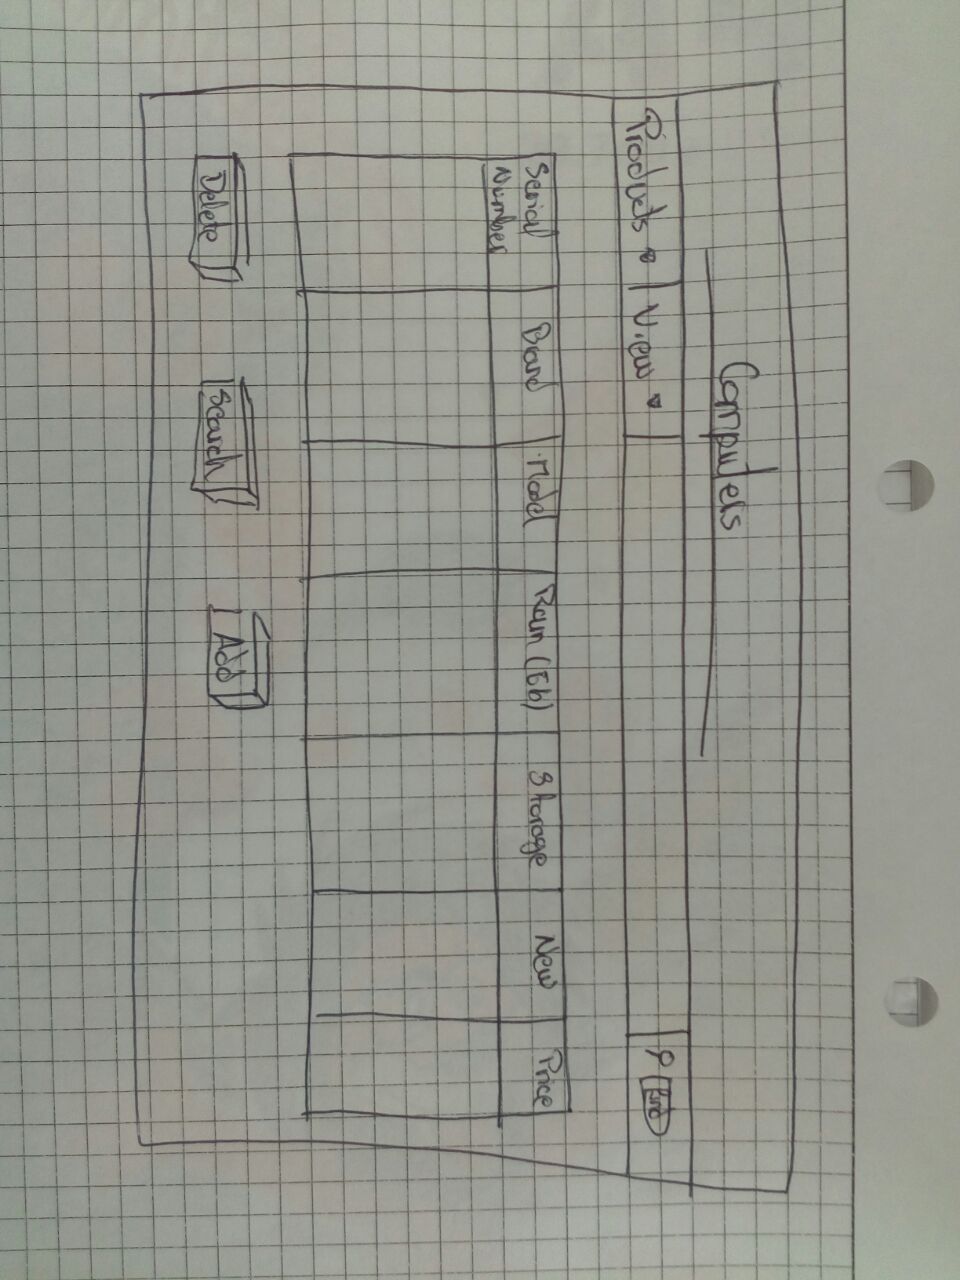 Computers
Products View Find
Serial Number Brand Model Ram (Gb) Storage New Price
Delete Search Add